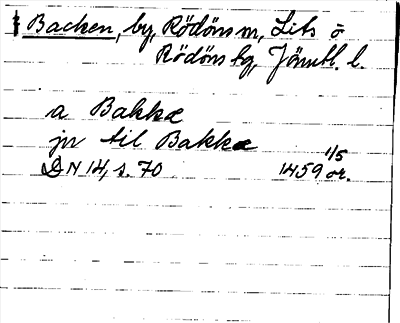 Backen, by, Rödöns sn, Lits o
Rödöns tg, Jämtl. l.
a Bakkæ
jn til Bakkæ
DN 14, s. 70 1459 1/5 or.